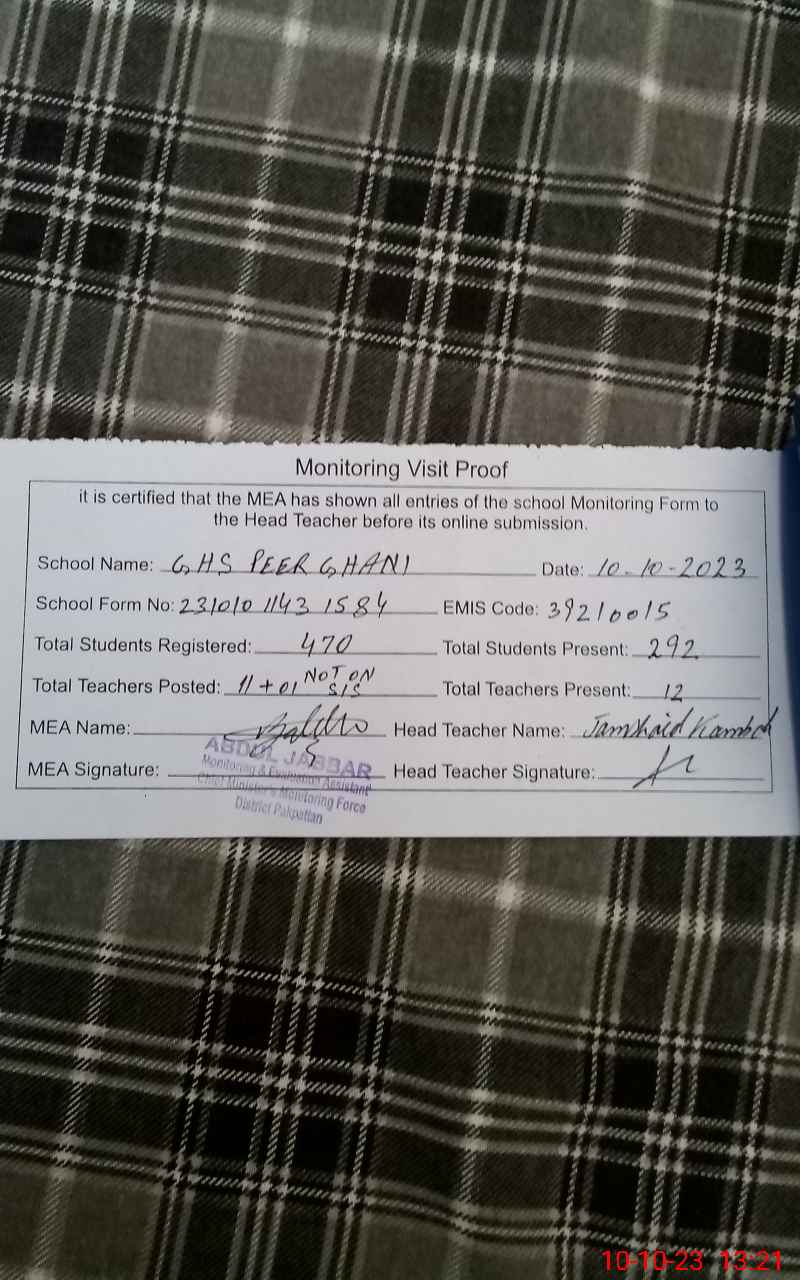 Monitoring Visit Proof
it is certified that the MEA has shown all entries of the school Monitoring Form to
the Head Teacher before its online submission.
School Name: GHS PEER GHANI Date: 10-10-2023
School Form No: 231010 1143 1584 EMIS Code: 39210015
Total Students Registered: 470 Total Students Present: 292
Total Teachers Posted: 11 + 01 NOT ON SIS Total Teachers Present: 12
MEA Name: Head Teacher Name: Jamshaid Kamboh
ABDUL JABBAR
MEA Signature: Head Teacher Signature:
Monitoring & Evaluation Assistant
Chief Minister's Monitoring Force
District Pakpattan
10-10-23 13:21